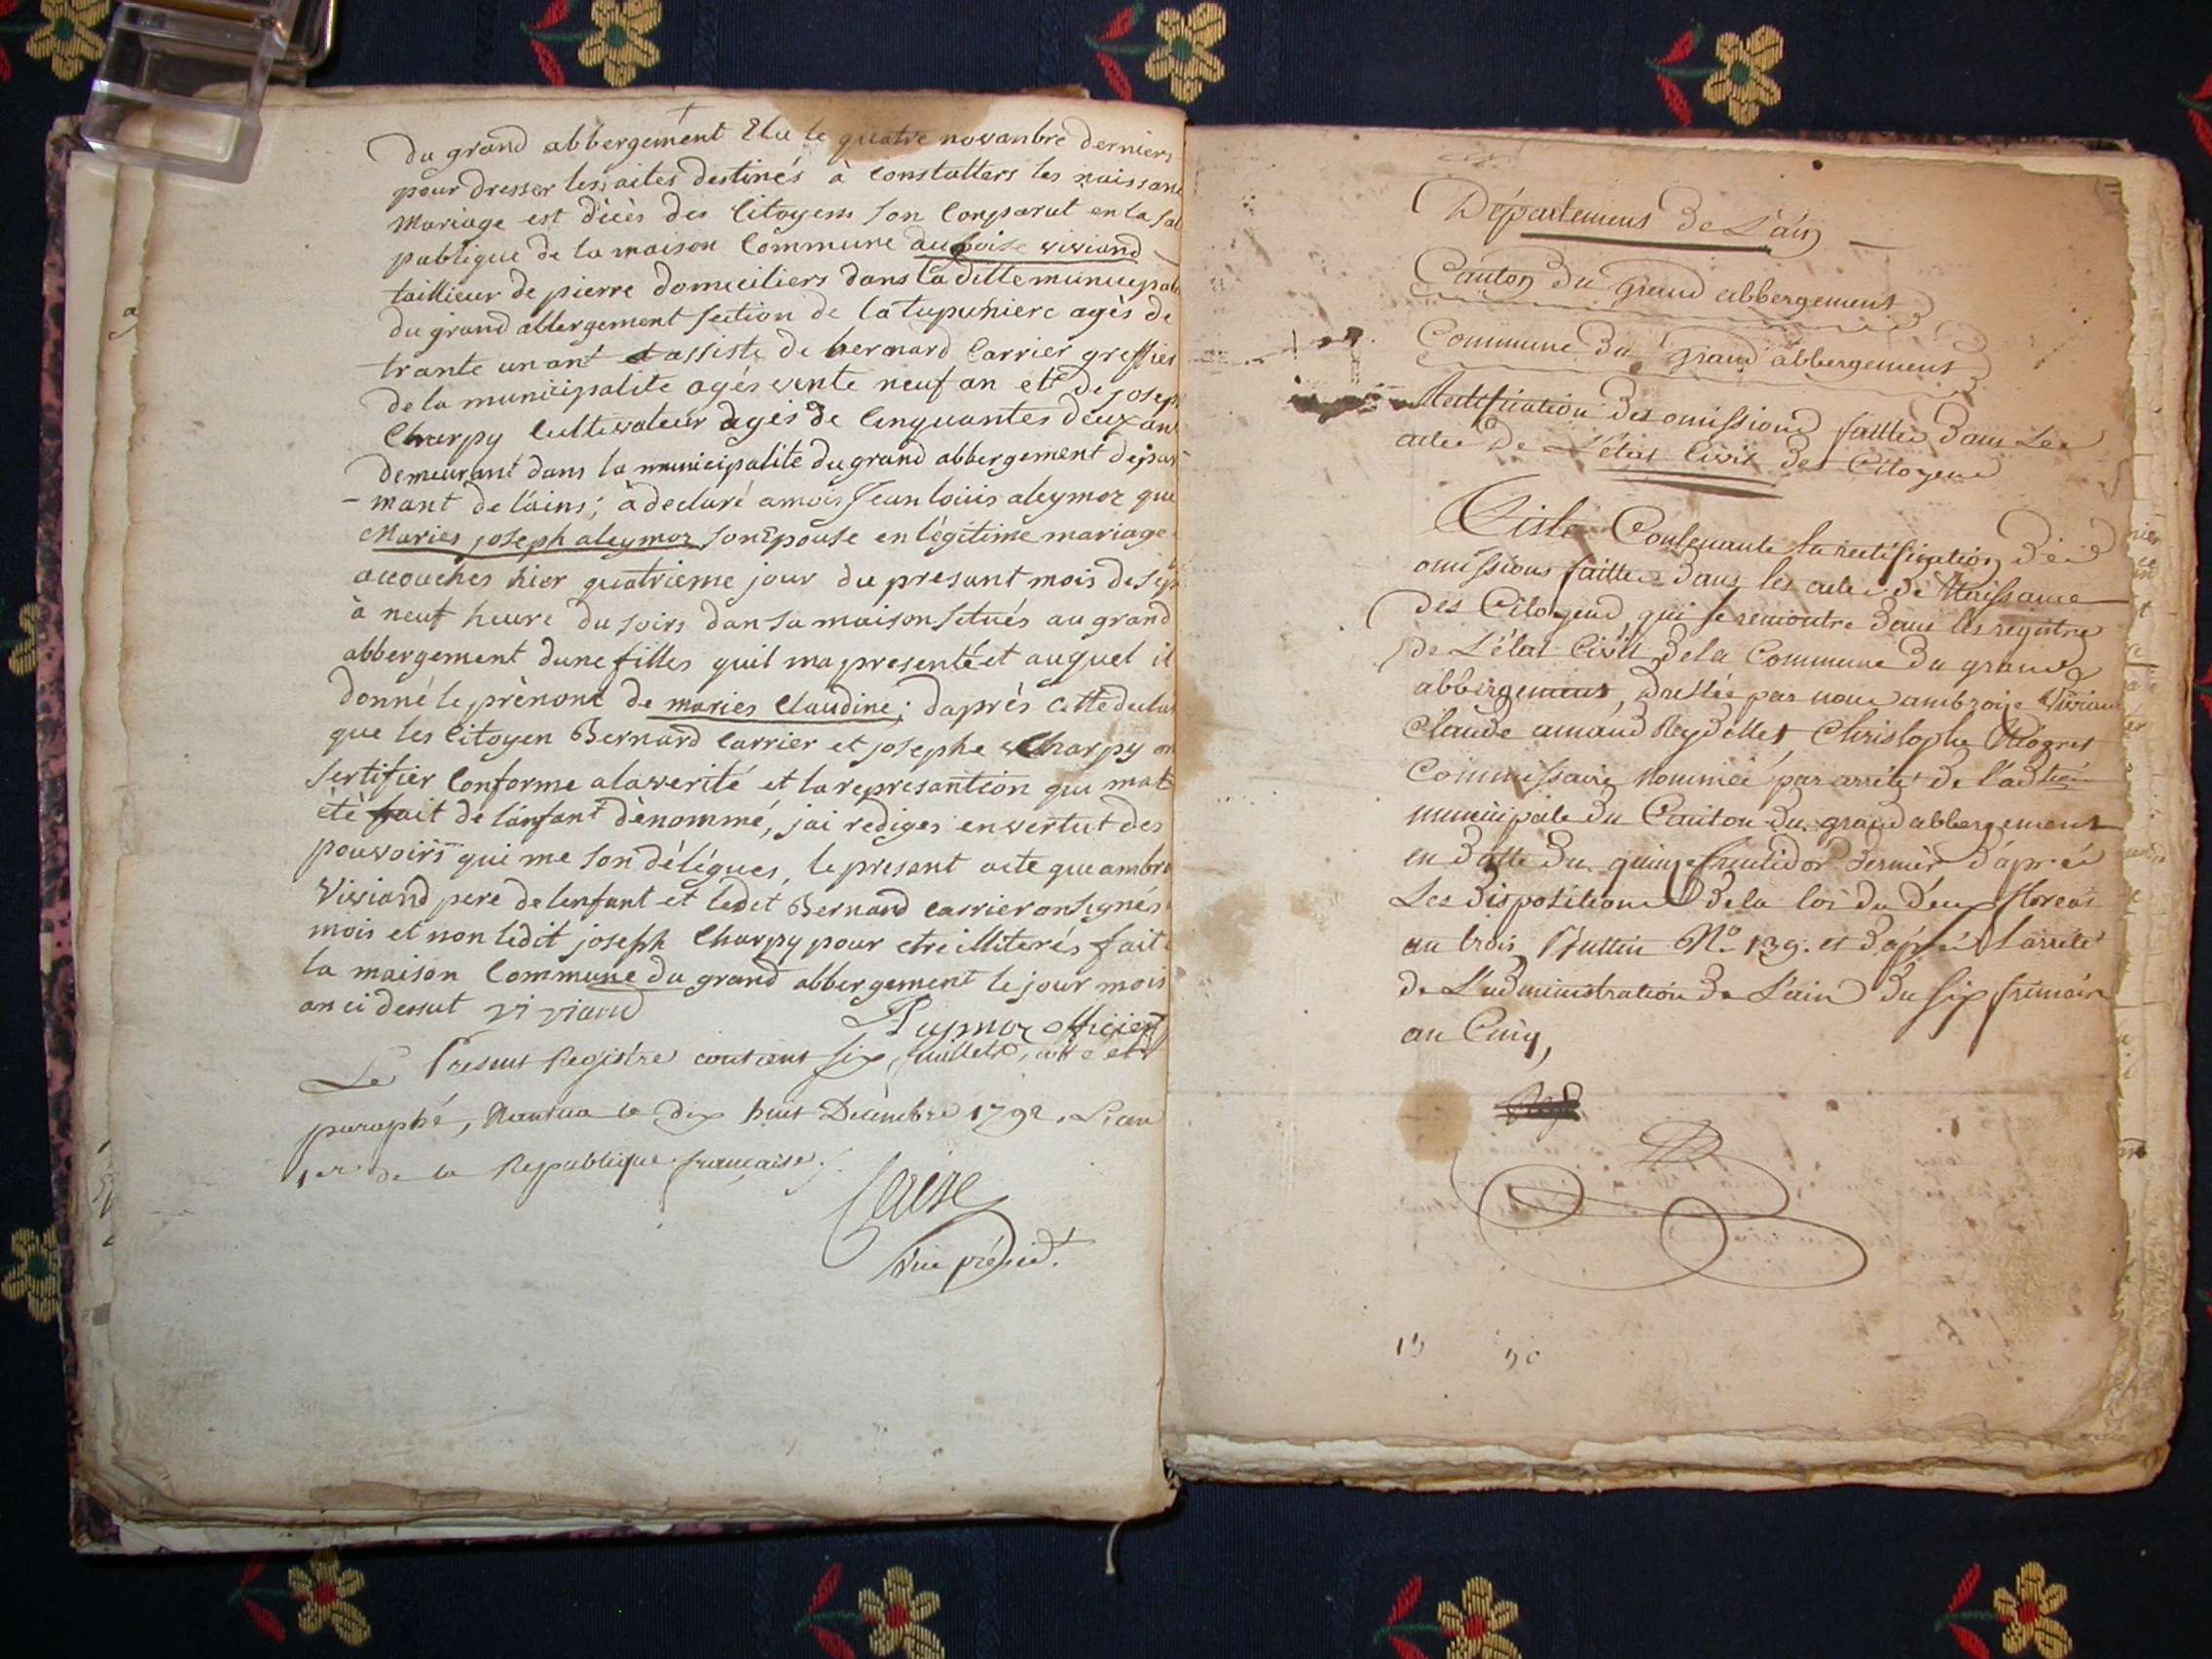 du grand abbergement Elu le quatre novanbre derniers
pour dresser les aites destinés à constatters les naissanc
mariage est dècès des Citoyens son Conparut en la sal
publique de la maison Commune viviand
taillieur de pierre domiciliers dans la ditte municipali
du grand abbergement section de la tupuniere agés de
trante un ant assiste de bernard Carrier greffier
de la municipalite agés vente neuf an ett de joseph
Charpy Cultivateur agés de Cinquantes deux an
demeurant dans la municipalite du grand abbergement depar
- mant de lains; à declaré amois Jean louis aleymoz que
Maries joseph aleymoz son Epouse en lègitime mariage
acouches hier quatrieme jour du presant mois de sep
à neuf heure du soirs dan sa maison situés au grand
abbergement dune filles quil ma presenté et auquel il
donné le prènont de maries Claudine; daprès cette declar
que les Citoyen Bernard Carrier et josephe Charpy on
sertifier Conforme alaverité et la represantion qui mat
étè fait de lanfant dènommé, jai rediges envertut des
pouvoirs qui me son délégues, le presant acte que ambro
Viviand pere de lenfant et ledit Bernard Carrier on signés
mois et non ledit joseph Charpy pour etre illiterés fait
la maison Commune du grand abbergement le jour mois
an ci dessut viviand
Leymoz officier
Le Present Registre contient six feuillets, cotté et
paraphé, Nantua le dix huit Décembre 1792. L'an
1er de la Republique française.
vice présid.t
Département de L'ain
Canton du Grand abbergement
Commune du Grand abbergement
Rectification des omissions faittes dans Les
actes de L'état Civil des Citoyens
Liste Contenante la rectification des
omissions faittes dans les actes de Naissance
des Citoyens, qui se rencontre dans les registre
de L'état Civil de la Commune du grand
abbergement, dressée par nous ambroise Vivian
Claude amand Reydellet, Christophe
Commissaire nommée par arrêté de l'ad.tion
municipale du Canton du grand abbergement
en datte du quinze fructidor dernier d'après
Les dispositions de la loi du deux floreal
an trois, Bulletin No 139. et d'après l'arrêté
de L'administration de L'ain du six frimaire
an Cinq,